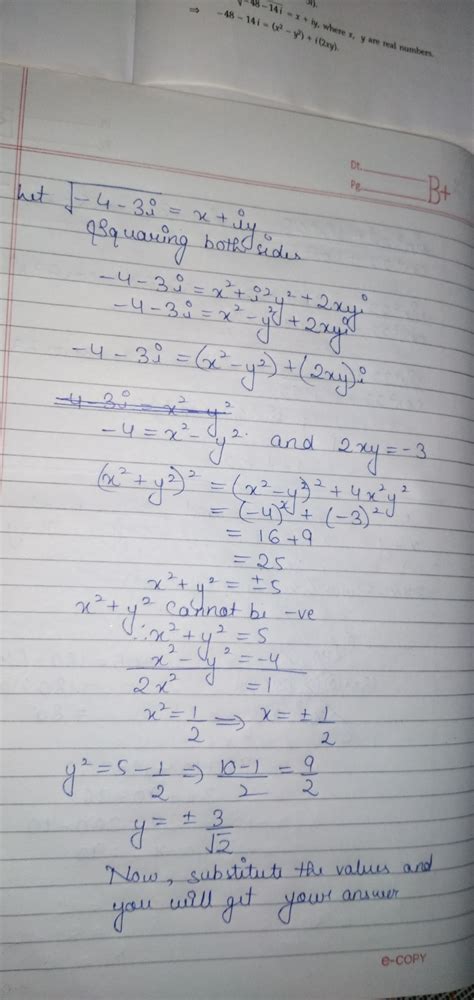 √-48-14i = x + iy, where x, y are real numbers.
⇒ -48 - 14i = (x² - y²) + i(2xy).
Dt.
Pg.
B+
Let √-4-3i = x + iy
Squaring both sides
-4-3i = x² + i²y² + 2xyi
-4-3i = x² - y² + 2xyi
-4-3i = (x² - y²) + (2xy)i
-4-3i = x² - y²
-4 = x² - y² and 2xy = -3
(x² + y²)² = (x² - y²)² + 4x²y²
= (-4)² + (-3)²
= 16 + 9
= 25
x² + y² = ±5
x² + y² cannot be -ve
∴ x² + y² = 5
x² - y² = -4
2x² = 1
x² = 1/2 ⇒ x = ± 1/2
y² = 5 - 1/2 ⇒ 10-1/2 = 9/2
y = ± 3/√2
Now, substitute the values and
you will get your answer
e-COPY